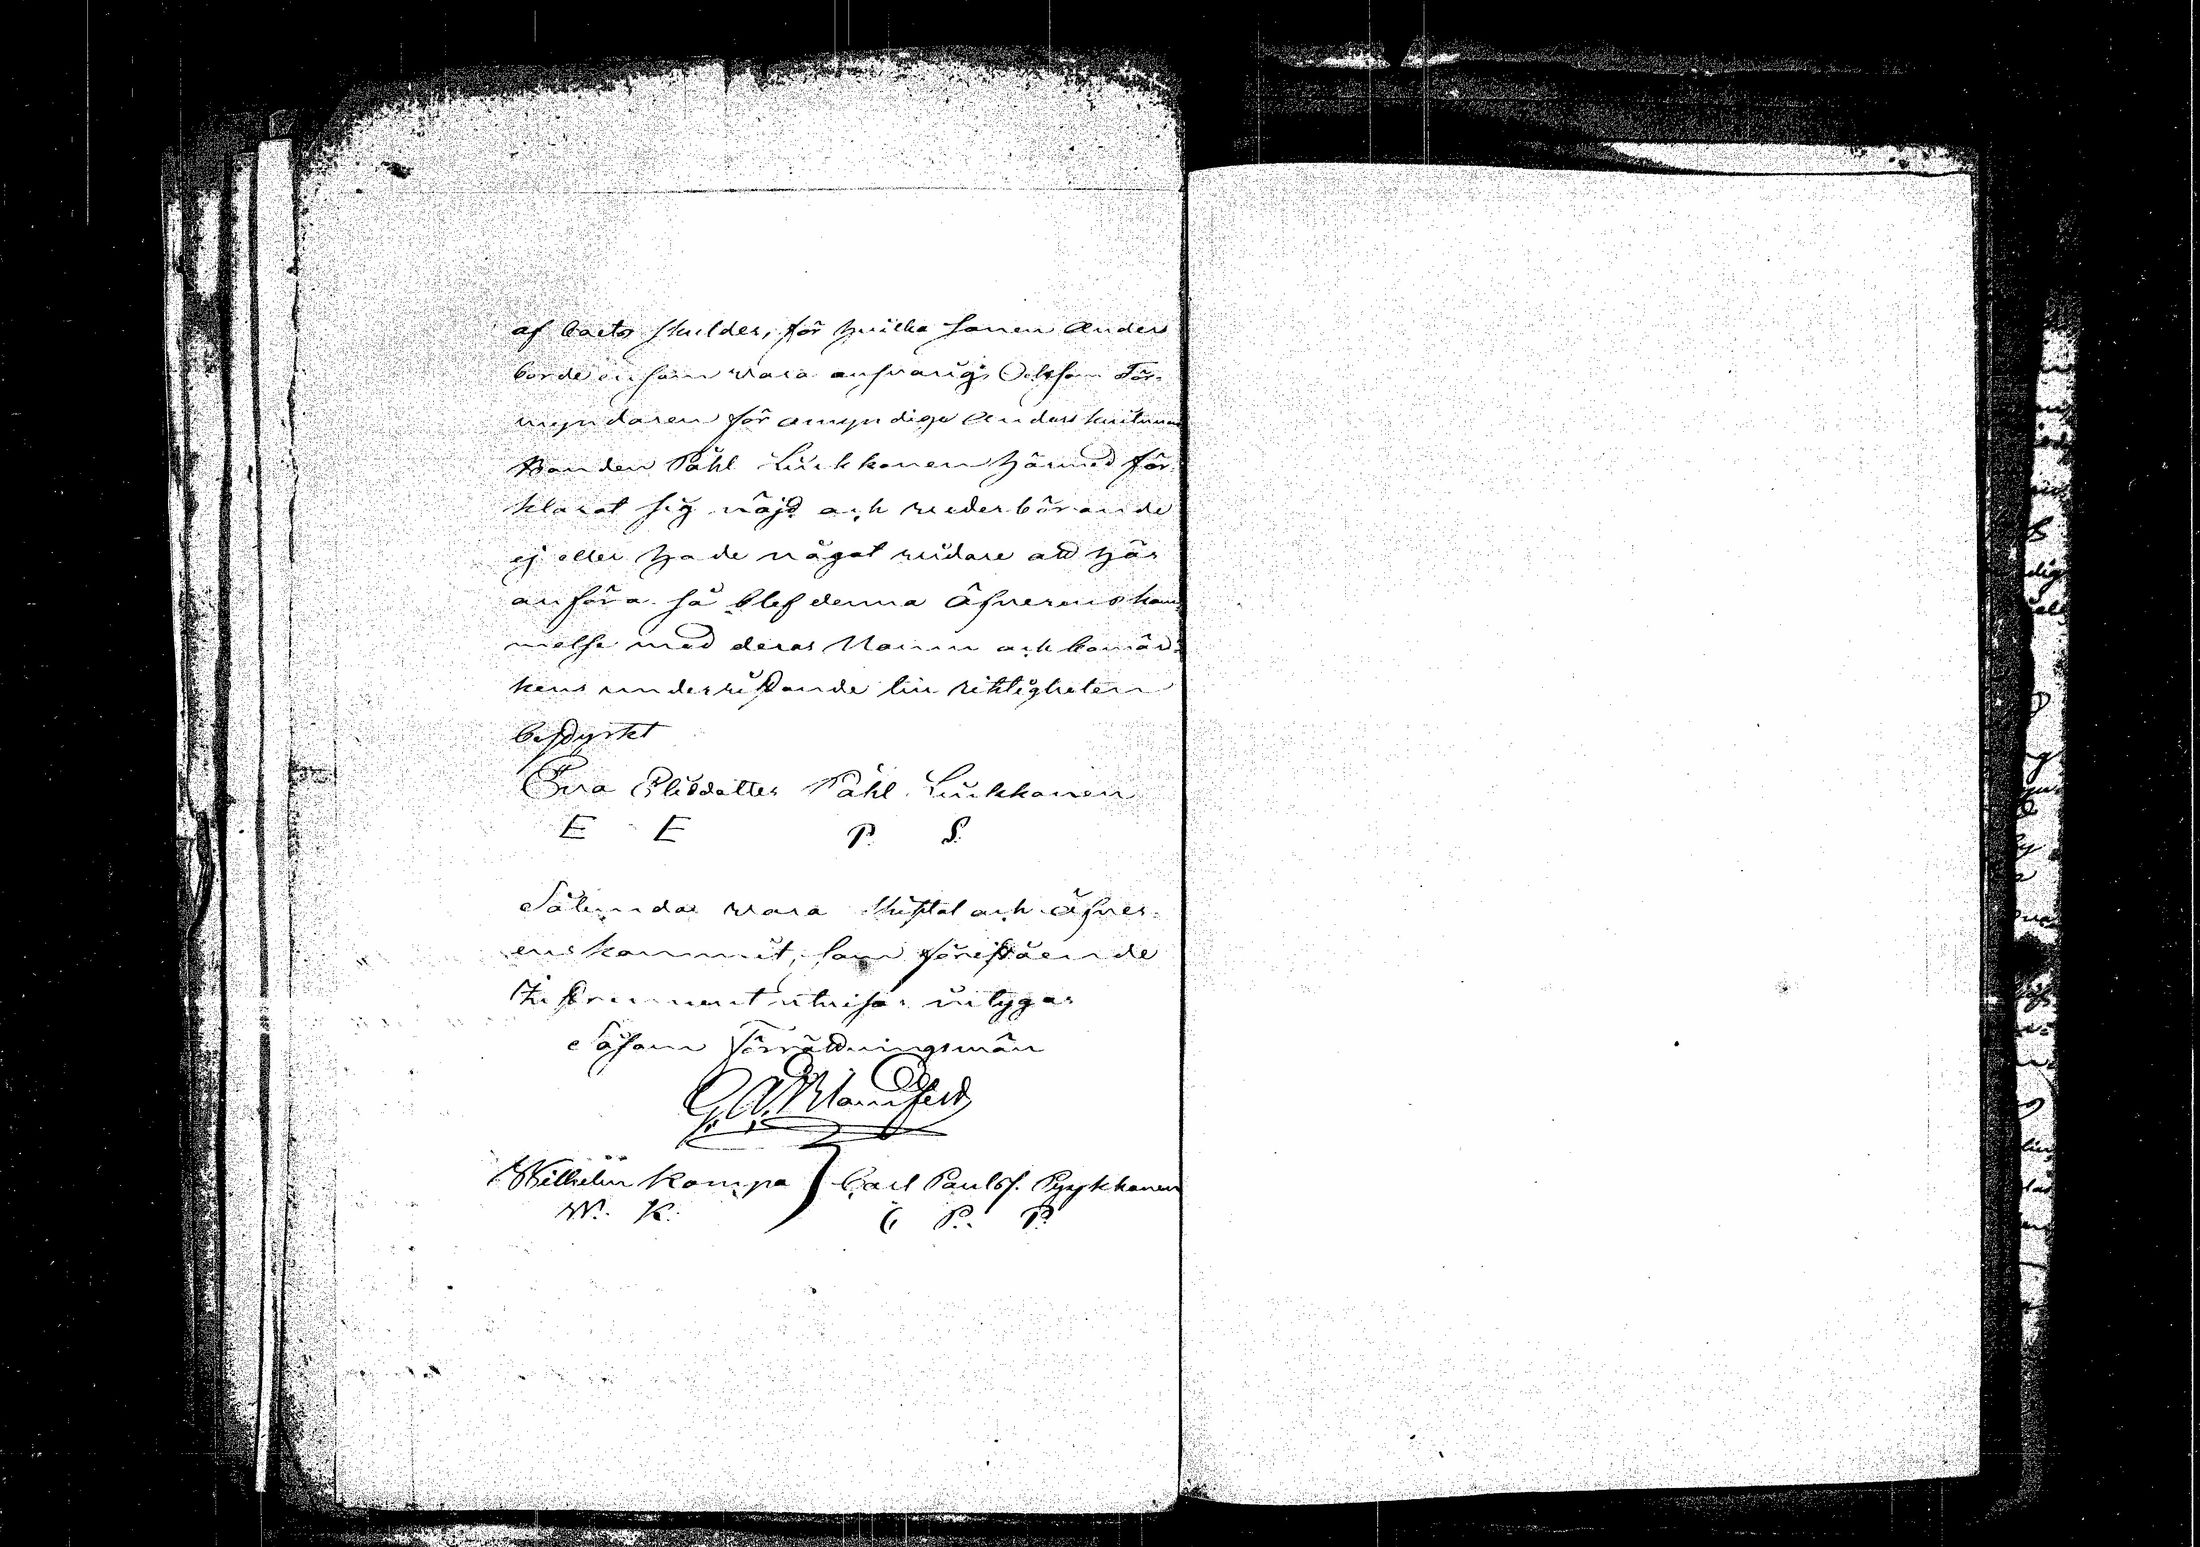 af boets skulder, för hvilka sonen Anders
borde ensam vara ansvarig. Och som För-
myndaren för omyndige Anders Huitunen
Bonden Påhl Luukkonen härmed för-
klarat sig nöjd och vederbörande
ej eller hade något vidare att här
anföra så blef denna Öfverenskom-
melse med deras Namn och bomär-
kens undersättande till riktigheten
bestyrkt
Eva Elisdotter Påhl Luukkonen
E E P L
Sålunda vara skiftat och öfver-
enskommit, som föreståënde
Instrument utvisar intygar
Såsom Förrättningsmän
Wilhelm Kompa } Carl Paulsf. Pyykkonen
W. K. C P. P.